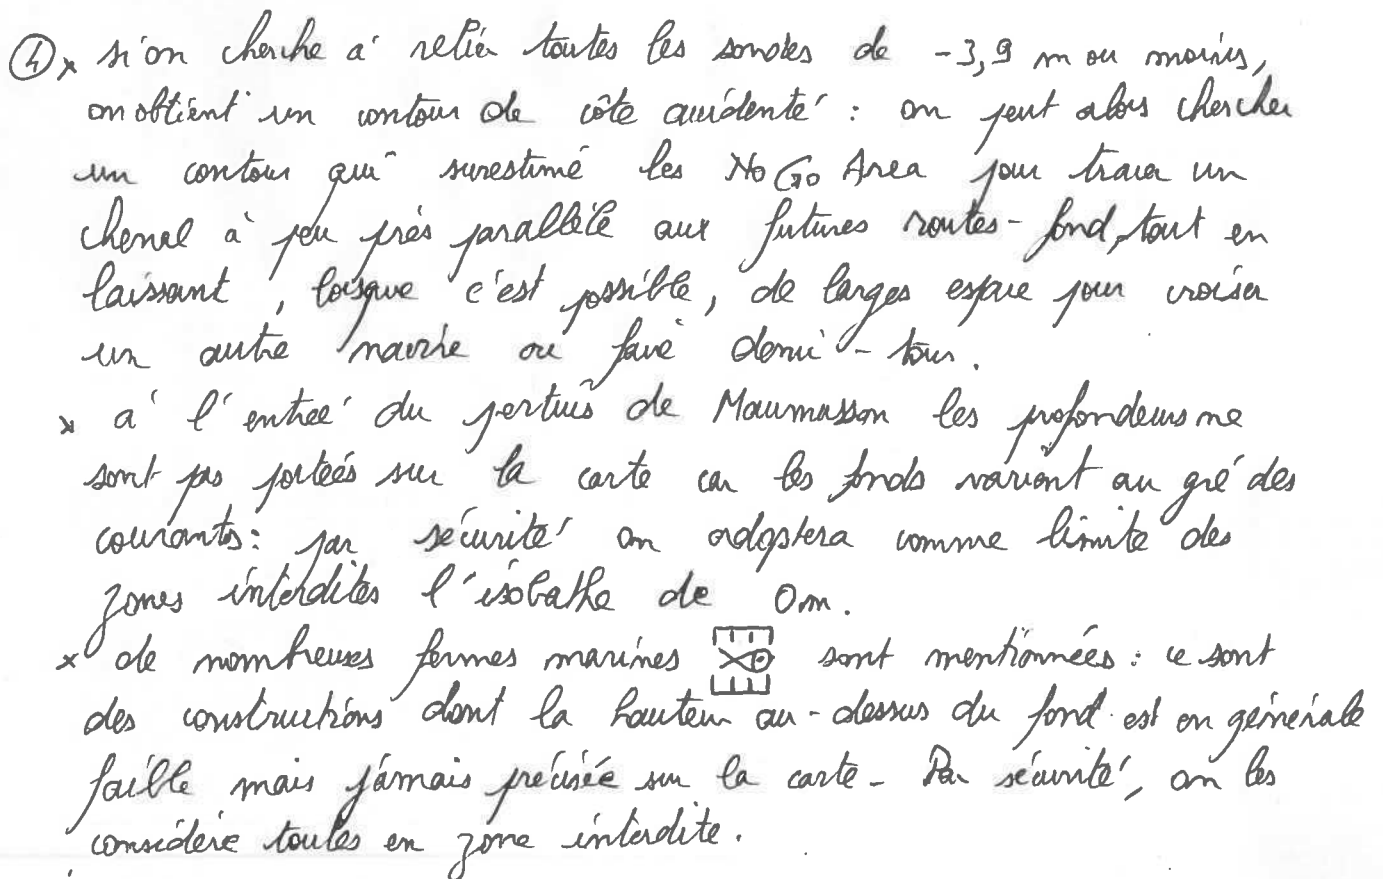 ④ × si on cherche à relier toutes les sondes de -3,9 m ou moins,
on obtient un contour de côte accidenté : on peut alors chercher
un contour qui surestime les No Go Area pour tracer un
chenal à peu près parallèle aux futures routes-fond, tout en
laissant, lorsque c'est possible, de larges espace pour croiser
un autre navire ou faire demi-tour.
× à l'entrée du pertuis de Maumusson les profondeurs ne
sont pas portées sur la carte car les fonds varient au gré des
courants : par sécurité on adoptera comme limite des
zones interdites l'isobathe de 0 m.
× de nombreuses fermes marines sont mentionnées : ce sont
des constructions dont la hauteur au-dessus du fond est en générale
faible mais jamais précisée sur la carte - Par sécurité, on les
considère toutes en zone interdite.